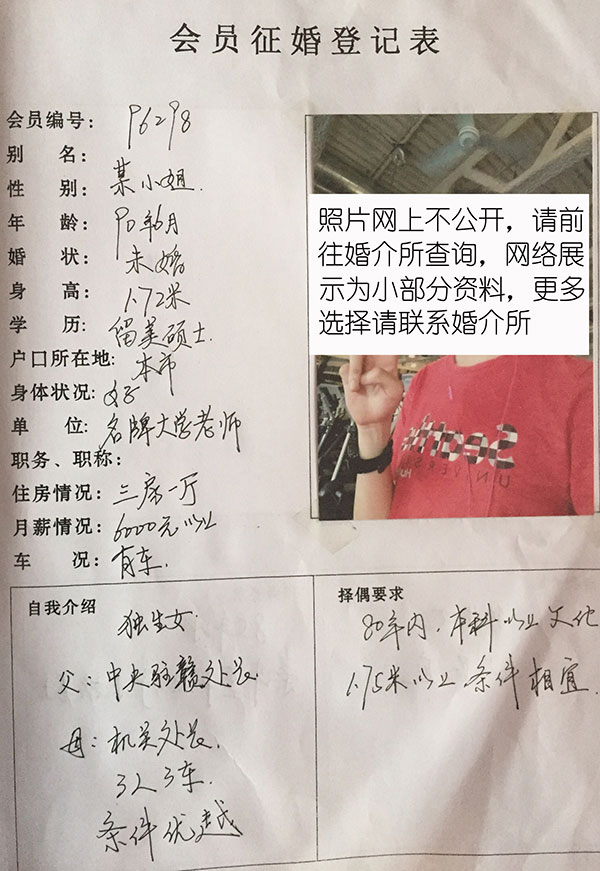 会员征婚登记表
会员编号: P6298
别 名: 某小姐.
性 别:
年 龄: 90年6月
婚 状: 未婚
身 高: 1.72米
学 历: 留美硕士.
户口所在地: 本市
身体状况: 好
单 位: 名牌大学老师
职务、职称:
住房情况: 三房一厅
月薪情况: 6000元以上
车 况: 有车.
照片网上不公开，请前
往婚介所查询，网络展
示为小部分资料，更多
选择请联系婚介所
自我介绍
独生女.
父: 中央驻赣处长.
母: 机关处长.
3人3车.
条件优越
择偶要求
80年内. 本科以上文化
1.75米以上 条件相宜.